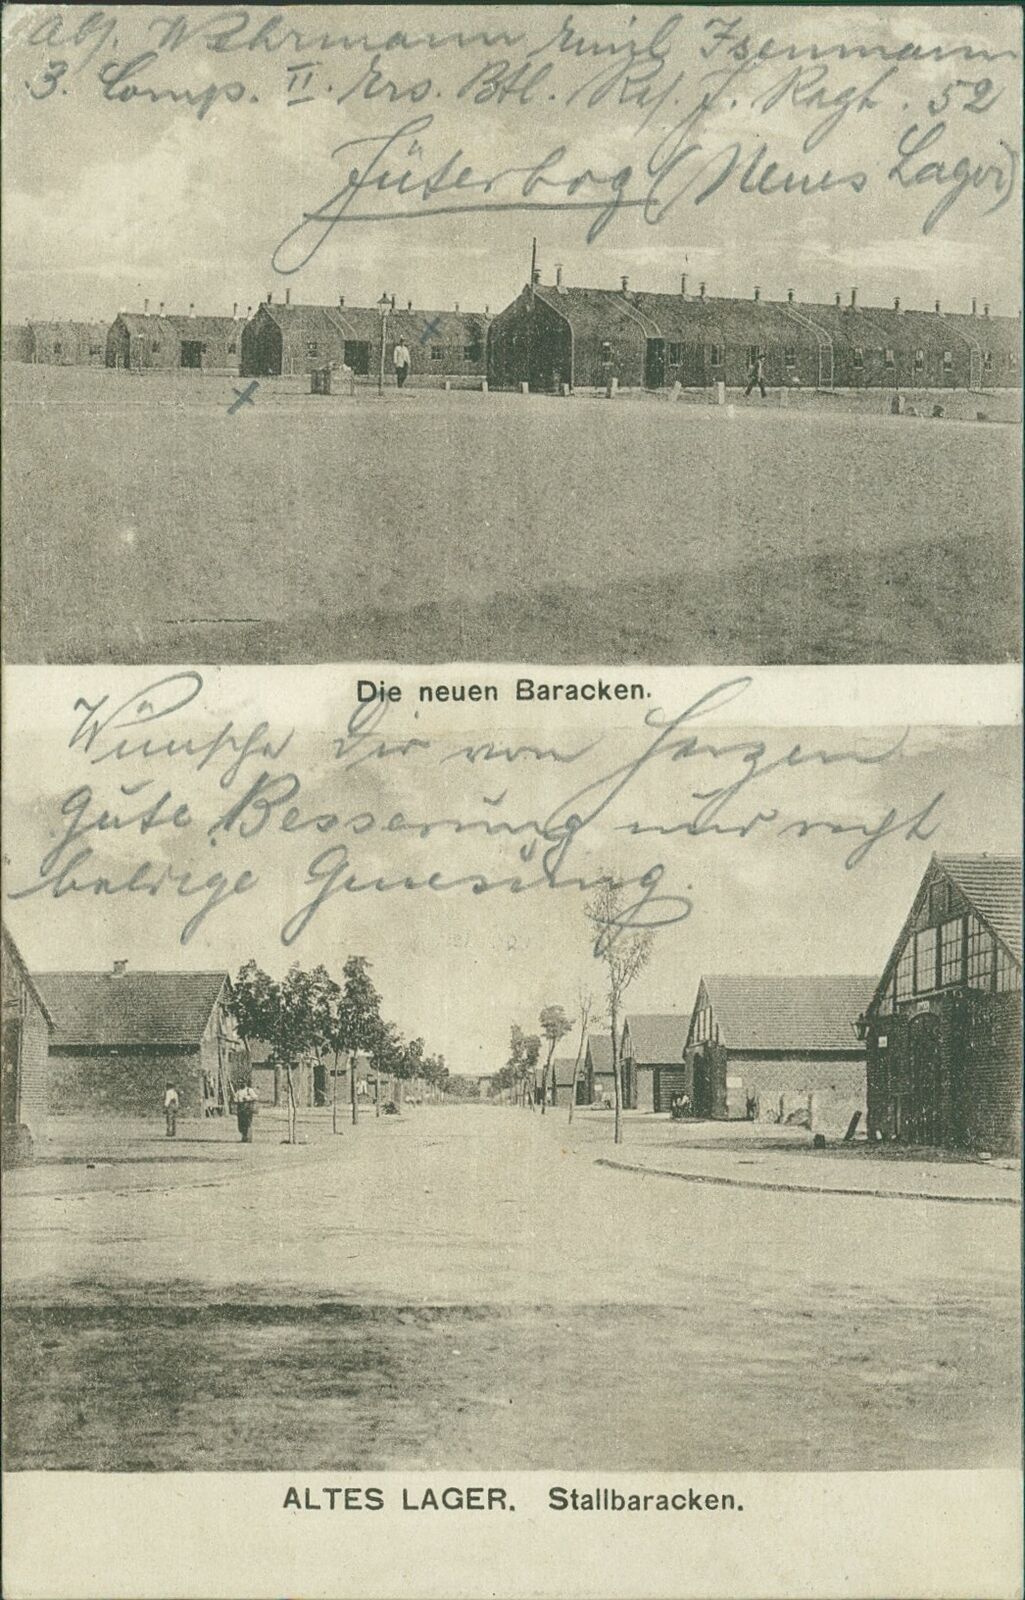 Abs. Wehrmann Emil Isenmann
3. Comp. II. Ers. Btl. Res. J. Regt. 52
Jüterbog (Neues Lager)
Die neuen Baracken.
Wünsche Dir von Herzen
gute Besserung und recht
baldige Genesung.
ALTES LAGER. Stallbaracken.